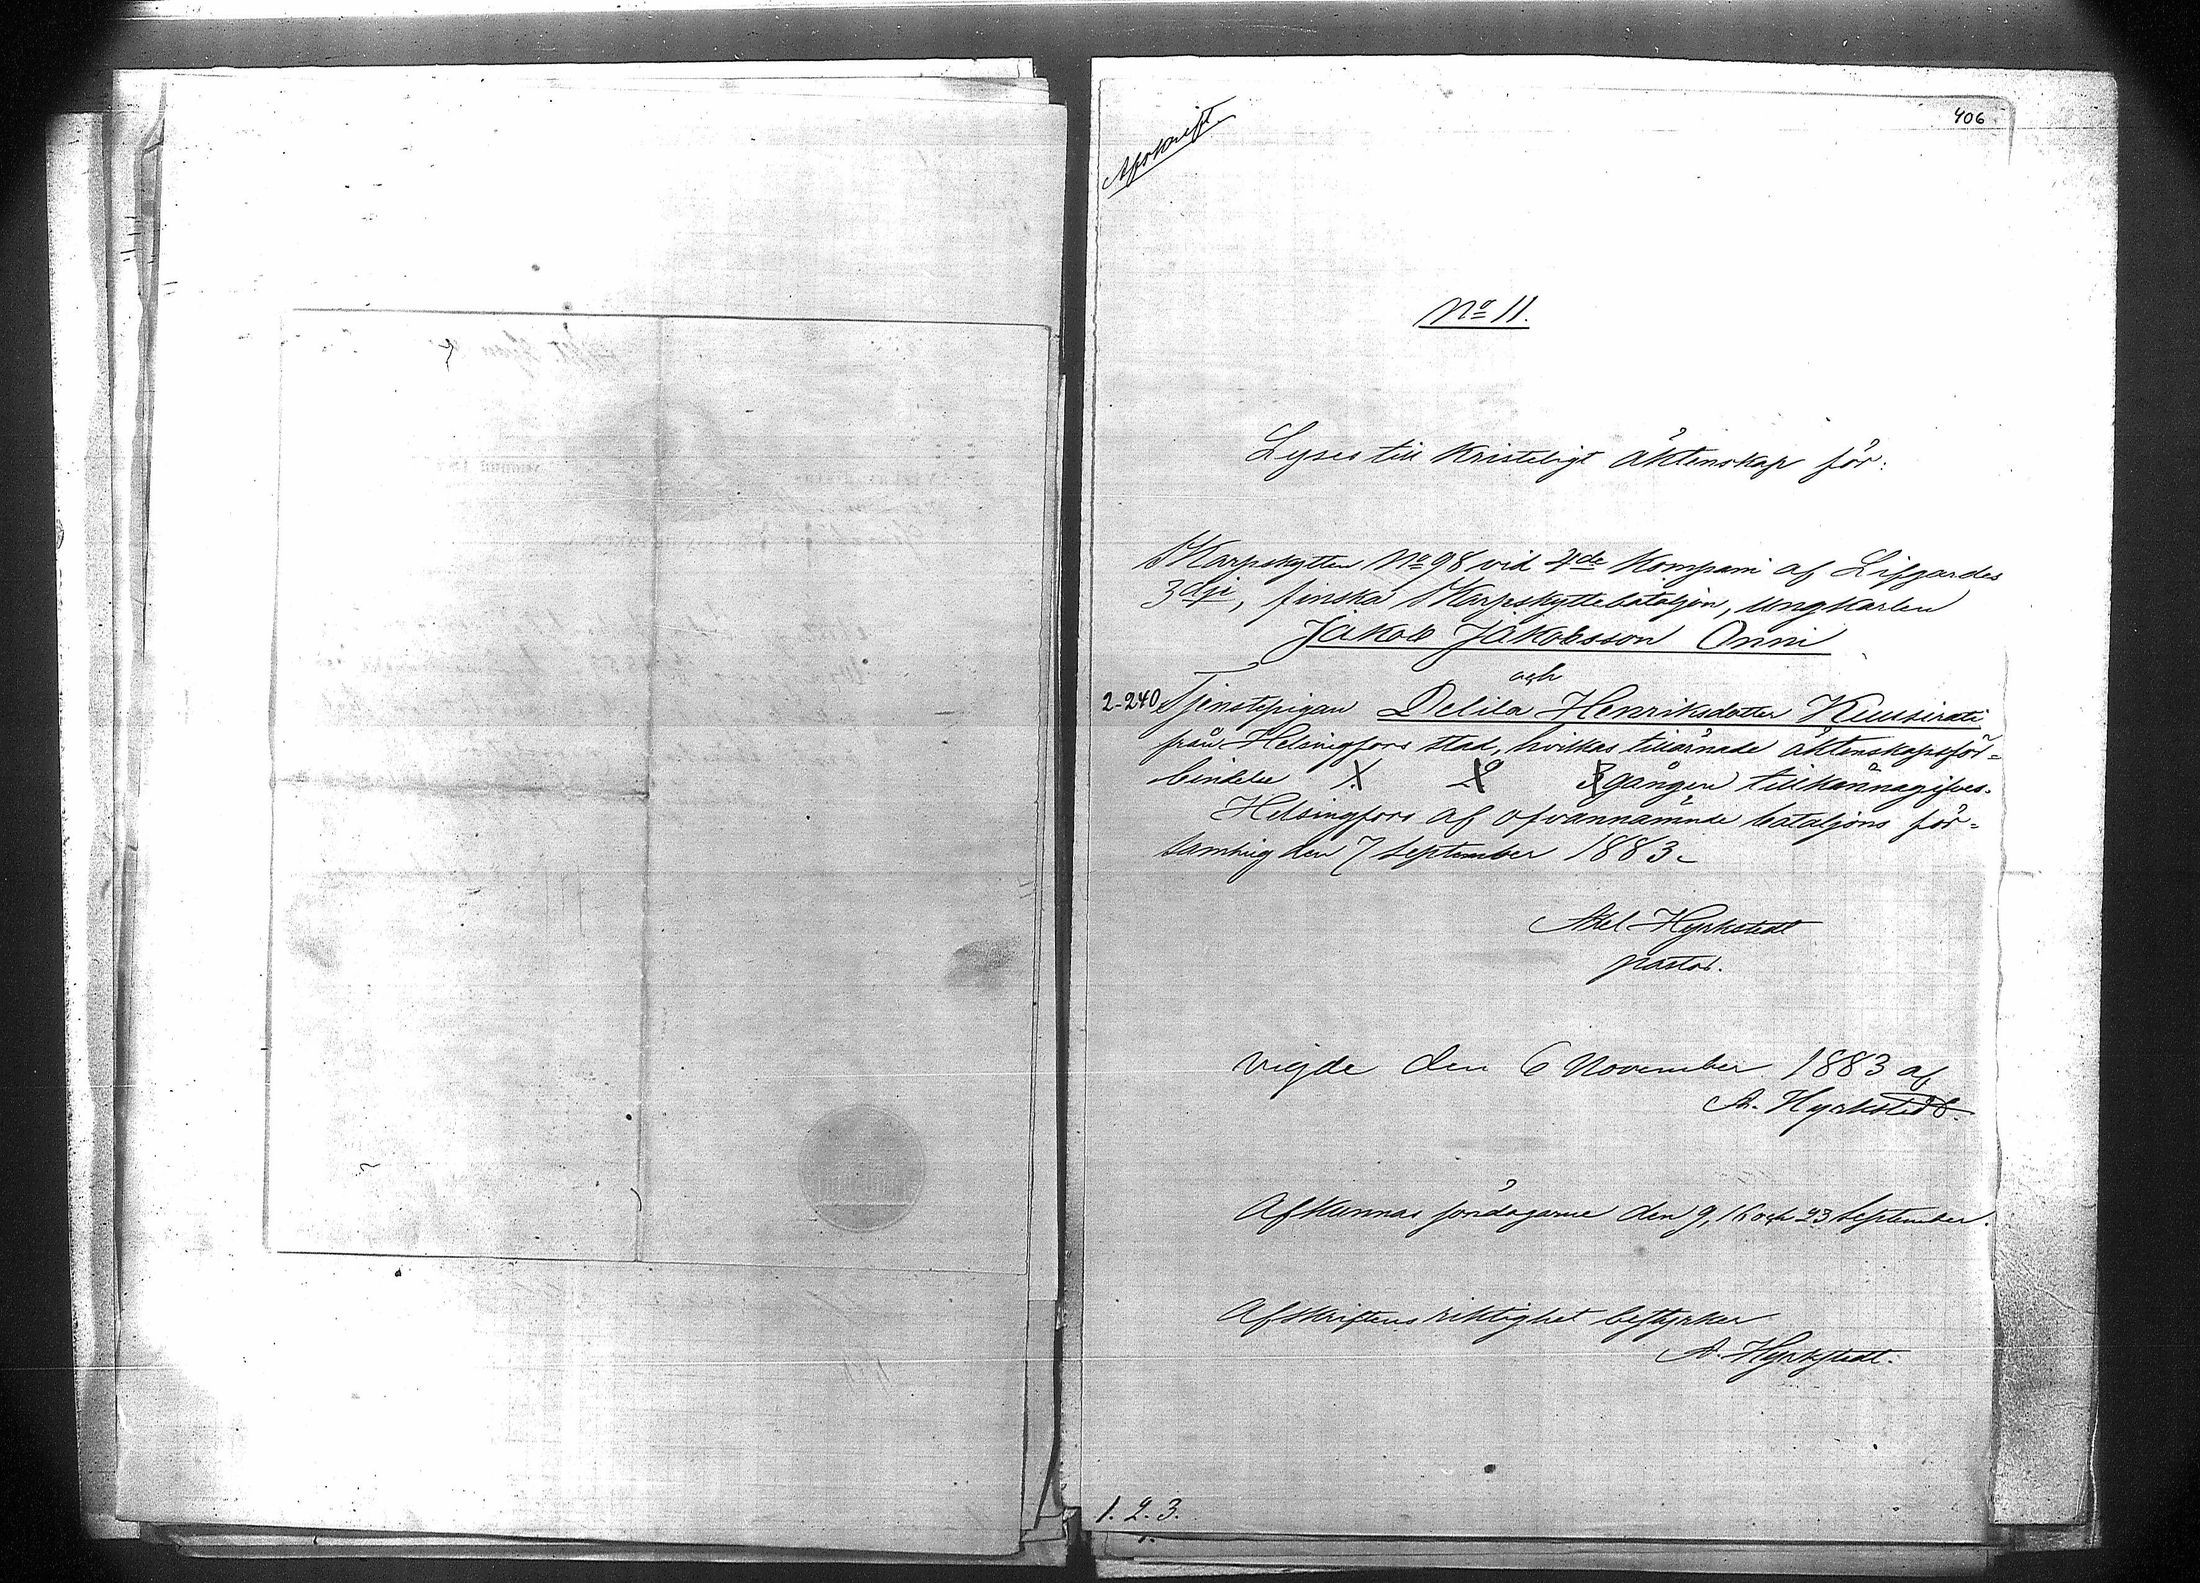 406
Afskrift
No 11.
Lyses till kristeligt äktenskap för:
Skarpskytten No 98 vid 4de Kompani af Lifgardes
3dje, finska Skarpskyttebataljon, ungkarlen
Jakob Jakobsson Onni
och
2-240 Tjenstepigan Delila Henriksdotter Kuusirati
från Helsingfors stad, hvilkas tillärnade äktenskapsför=
bindelse 1 2 3 gången tillkännagifves.
Helsingfors af ofvannämnde bataljons för=
samling den 7 September 1883.
Axel Hyrkstedt
pastor.
Vigde den 6 November 1883 af
A. Hyrkstedt.
Afkunnas söndagarne den 9, 16 och 23 September.
Afskriftens riktighet bestyrker
A. Hyrkstedt.
1. 2. 3.